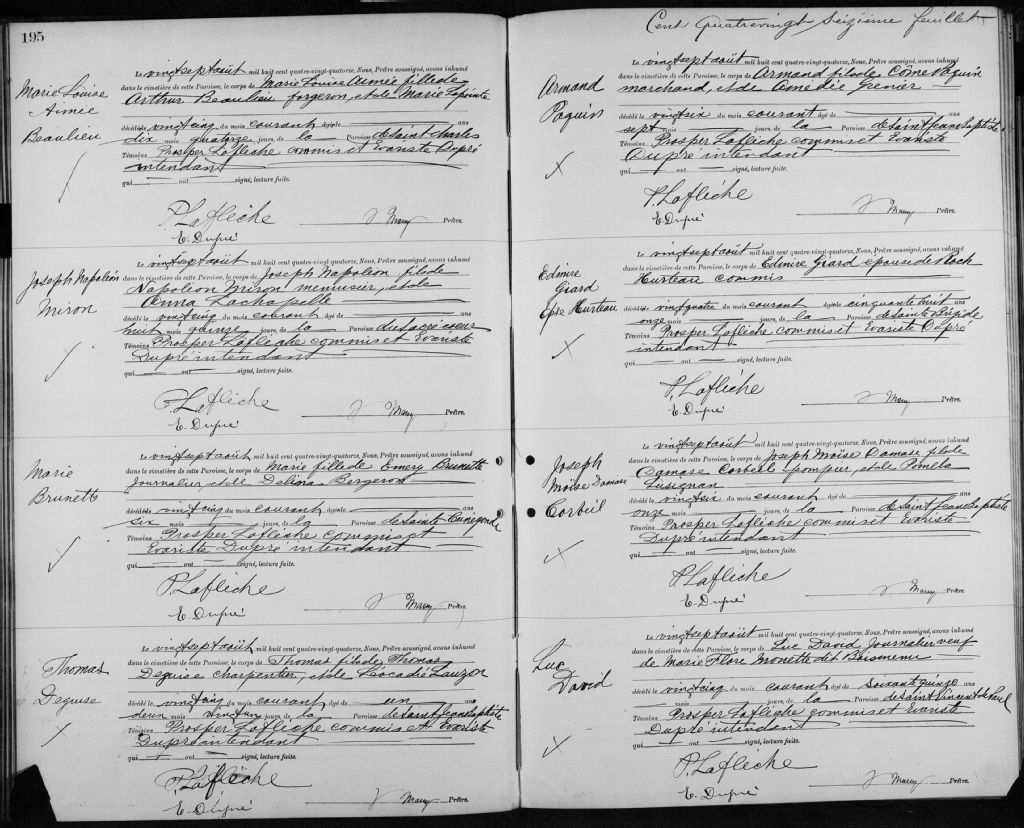 195
Marie Louise
Aimée
Beaulieu
Le vingt sept août mil huit cent quatre-vingt-quatorze, Nous, Prêtre soussigné, avons inhumé
dans le cimetière de cette Paroisse, le corps de Marie Louise Aimée fille de
Arthur Beaulieu forgeron, et de Marie Lapointe
décédé le vingt cinq du mois courant âgé de ans
dix mois quatorze jours, de la Paroisse de Saint Charles
Témoins Prosper Laflèche commis et Evariste Dupré
intendant
qui ont signé, lecture faite.
P. Laflèche
E. Dupré
Prêtre.
Joseph Napoléon
Miron
Le vingt sept août mil huit cent quatre-vingt-quatorze, Nous, Prêtre soussigné, avons inhumé
dans le cimetière de cette Paroisse, le corps de Joseph Napoléon fils de
Napoléon Miron menuisier, et de
Anna Lachapelle
décédé le vingt cinq du mois courant âgé de ans
huit mois quinze jours, de la Paroisse du Sacré coeur
Témoins Prosper Laflèche commis et Evariste
Dupré intendant
qui ont signé, lecture faite.
P. Laflèche
E. Dupré
Prêtre.
Marie
Brunette
Le vingt sept août mil huit cent quatre-vingt-quatorze, Nous, Prêtre soussigné, avons inhumé
dans le cimetière de cette Paroisse, le corps de Marie fille de Emery Brunette
journalier, et de Délina Bergeron
décédé le vingt cinq du mois courant âgé de ans
six mois jours, de la Paroisse de Sainte Cunégonde
Témoins Prosper Laflèche commis et
Evariste Dupré intendant
qui ont signé, lecture faite.
P. Laflèche
E. Dupré
Prêtre.
Thomas
Deguise
Le vingt sept août mil huit cent quatre-vingt-quatorze, Nous, Prêtre soussigné, avons inhumé
dans le cimetière de cette Paroisse, le corps de Thomas fils de Thomas
Deguise charpentier, et de Léocadie Lauzon
décédé le vingt cinq du mois courant âgé de un ans
deux mois vingt un jours, de la Paroisse de Saint Jean Baptiste
Témoins Prosper Laflèche commis et Evariste
Dupré intendant
qui ont signé, lecture faite.
P. Laflèche
E. Dupré
Prêtre.
Cent Quatrevingt Seizième feuillet
Armand
Paquin
Le vingt sept août mil huit cent quatre-vingt-quatorze, Nous, Prêtre soussigné, avons inhumé
dans le cimetière de cette Paroisse, le corps de Armand fils de Côme Paquin
marchand, et de Amédié Grenier
décédé le vingt six du mois courant âgé de ans
sept mois jours, de la Paroisse de Saint Jean Baptiste
Témoins Prosper Laflèche commis et Evariste
Dupré intendant
qui ont signé, lecture faite.
P. Laflèche
E. Dupré
Prêtre.
Edmire
Giard
Epse Hurteau
Le vingt sept août mil huit cent quatre-vingt-quatorze, Nous, Prêtre soussigné, avons inhumé
dans le cimetière de cette Paroisse, le corps de Edmire Giard épouse de Roch
Hurteau commis
décédée vingt quatre du mois courant âgé de cinquante huit ans
onze mois jours, de la Paroisse de Sainte Brigide
Témoins Prosper Laflèche commis et Evariste Dupré
intendant
qui ont signé, lecture faite.
P. Laflèche
E. Dupré
Prêtre.
Joseph
Moïse Damase
Corbeil
Le vingt sept août mil huit cent quatre-vingt-quatorze, Nous, Prêtre soussigné, avons inhumé
dans le cimetière de cette Paroisse, le corps de Joseph Moïse Damase fils de
Damase Corbeil pompier, et de Pomela
Lusignan
décédé le vingt six du mois courant âgé de ans
onze mois jours, de la Paroisse de Saint Jean Baptiste
Témoins Prosper Laflèche commis et Evariste
Dupré intendant
qui ont signé, lecture faite.
P. Laflèche
E. Dupré
Prêtre.
Luc
David
Le vingt sept août mil huit cent quatre-vingt-quatorze, Nous, Prêtre soussigné, avons inhumé
dans le cimetière de cette Paroisse, le corps de Luc David Journalier veuf
de Marie Flore Monette dit Boismenu
décédé le vingt cinq du mois courant âgé de Soixante quinze ans
mois jours, de la Paroisse de Saint Vincent de Paul
Témoins Prosper Laflèche commis et Evariste
Dupré intendant
qui ont signé, lecture faite.
P. Laflèche
E. Dupré
Prêtre.